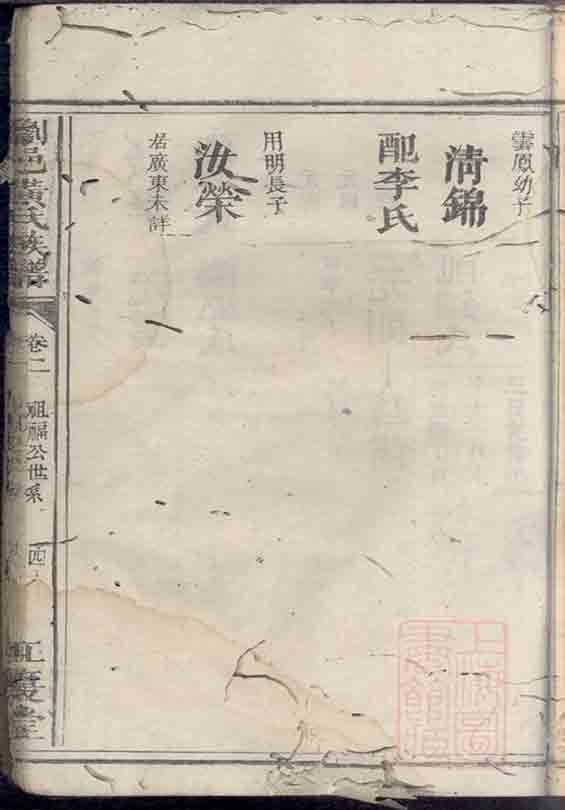 雲鳳幼子
清錦
配李氏
用明長子
汝榮
居廣東未詳
劉邑黃氏族譜
卷二
祖福公世系
四
上海圖
書館藏